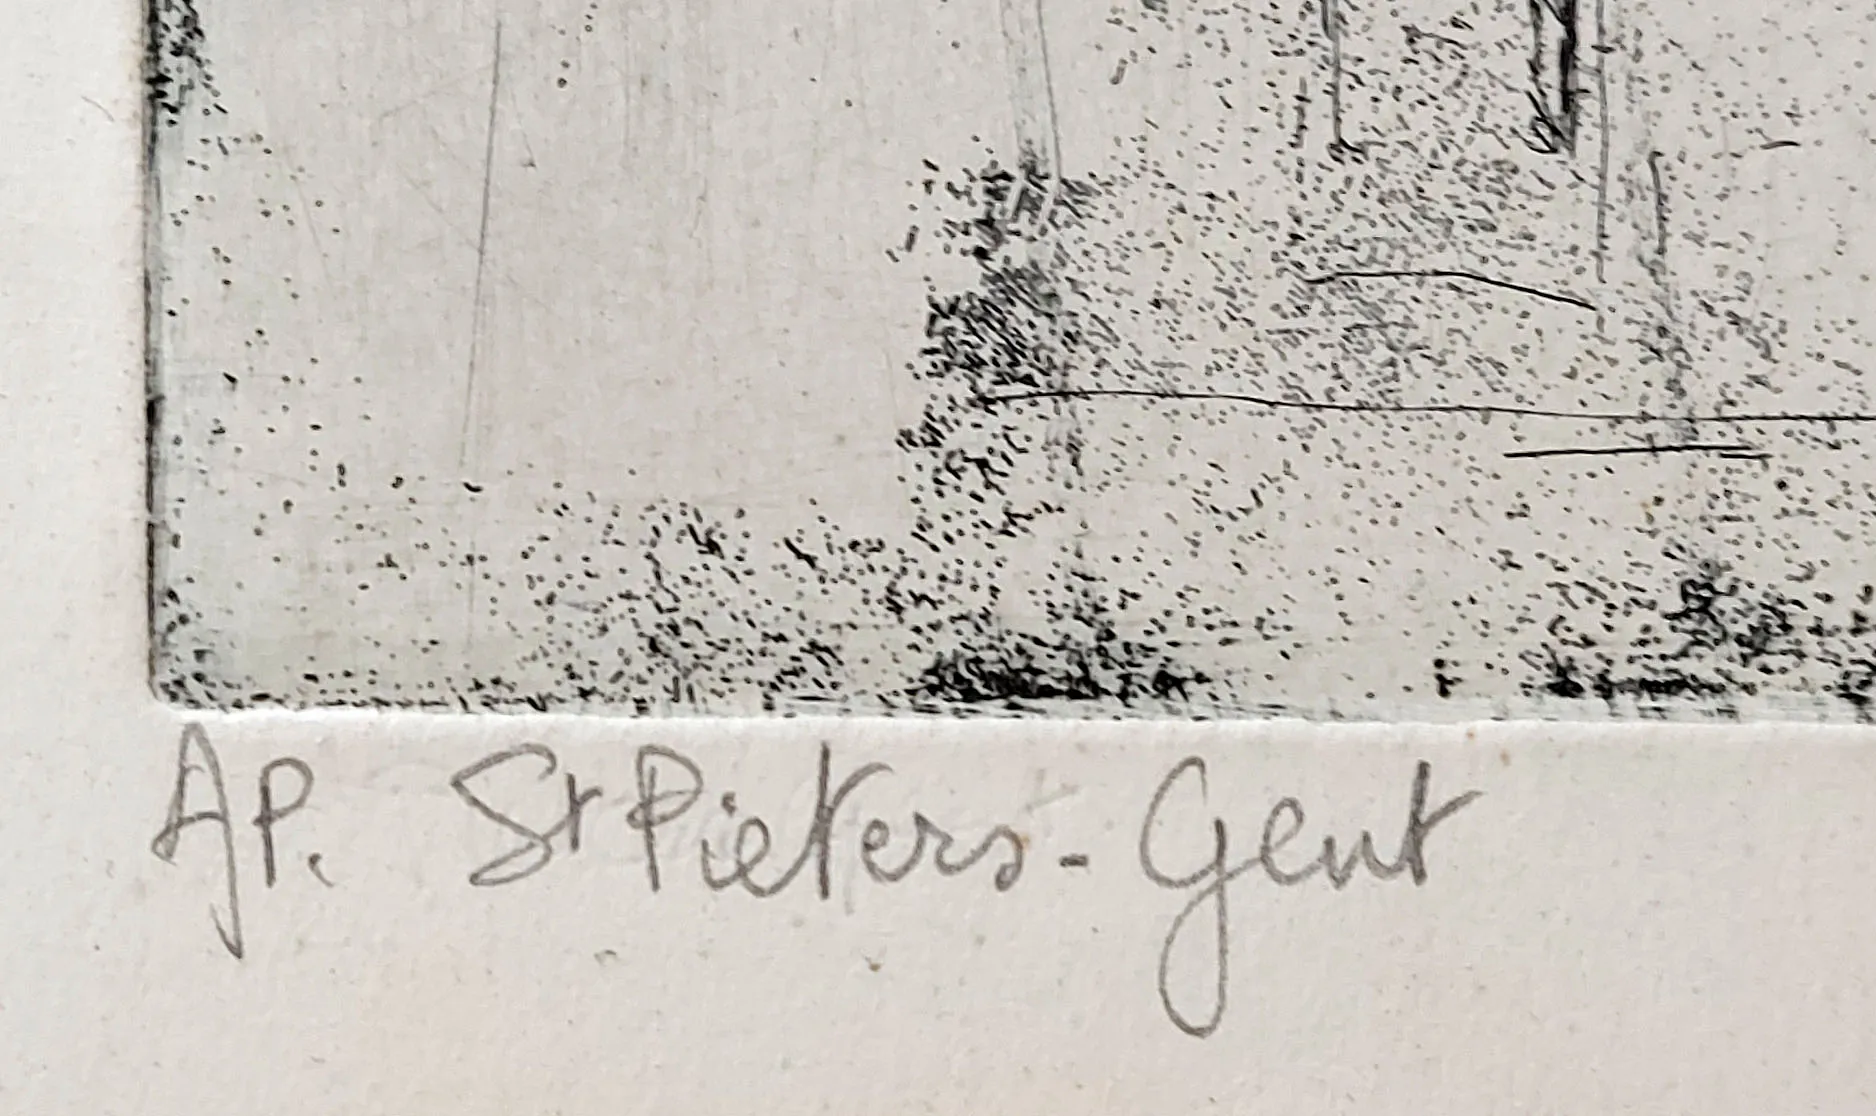 AP. St Pieters - Gent